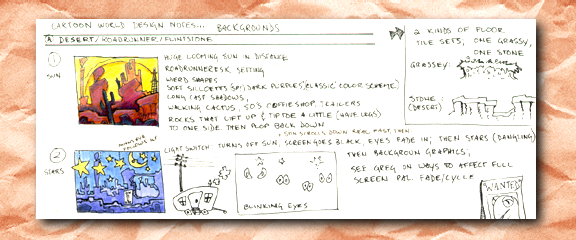 CARTOON WORLD DESIGN NOTES... BACKGROUNDS
A. DESERT/ROADRUNNER/FLINTSTONE
1
SUN
HUGE LOOMING SUN IN DISTANCE
ROADRUNNERESK SETTING
WIERD SHAPES
SOFT SILLOETTS DARK PURPLES (CLASSIC COLOR SCHEME)
LONG CAST SHADOWS,
WALKING CACTUS, 50'S COFFIE SHOP, TRAILERS
ROCKS THAT LIFT UP & TIPTOE A LITTLE (HAVE LEGS)
TO ONE SIDE THEN PLOP BACK DOWN
SUN SCROLLS DOWN REAL FAST, THEN
2
STARS
LIGHT SWITCH: TURNS OFF SUN, SCREEN GOES BLACK, EYES FADE IN, THEN STARS (DANGLING)
THEN BACKGROUN GRAPHICS,
SEE GREG ON WAYS TO AFFECT FULL
SCREEN PAL. FADE/CYCLE
BLINKING EYES
2 KINDS OF FLOOR
TILE SETS, ONE GRASSY,
ONE STONE
GRASSEY:
STONE
(DESERT)
WANTED